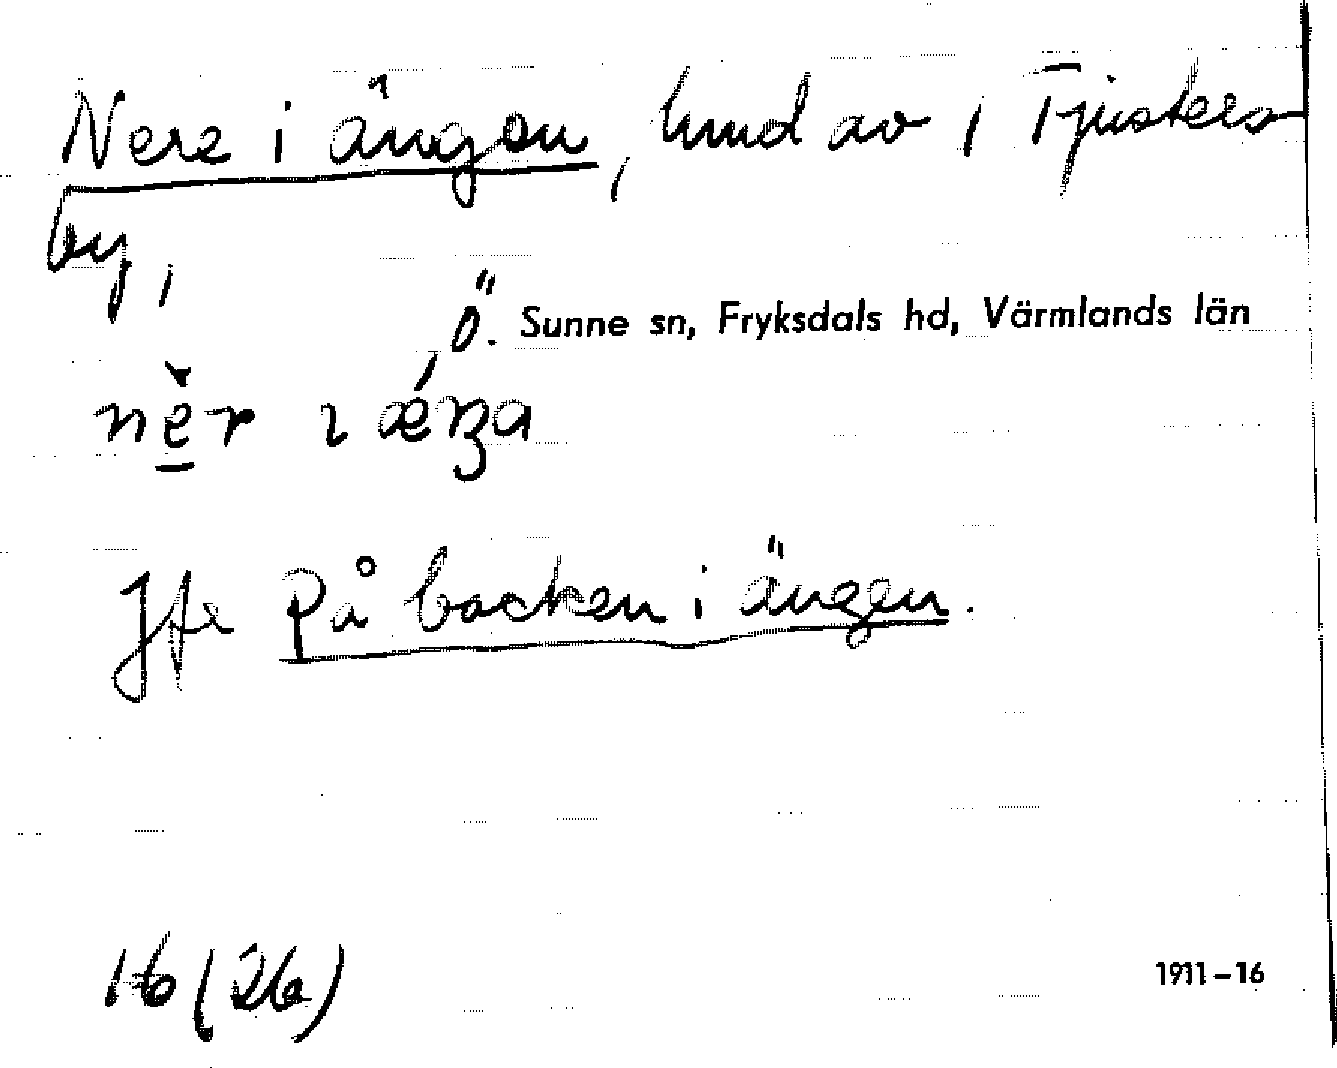 Nere i ängen, hmd av i Tjusters
by,
Ö. Sunne sn, Fryksdals hd, Värmlands län
Jfr På backen i ängen.
16 (26)
1911-16